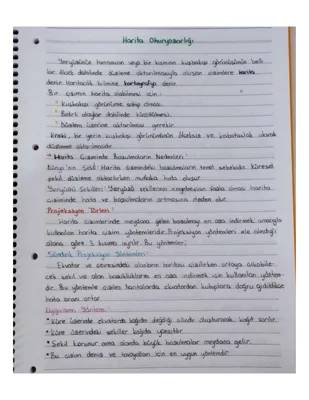 Harita Okuryazarlığı
Yeryüzünün tamamının veya bir kısmının kuşbakışı görünümünün belli
bir ölçek dahilinde düzleme aktarılmasıyla oluşan çizimlere harita
denir. Haritacılık bilimine kartografya denir.
Bir çizimin harita olabilmesi için:
* Kuşbakışı görünüme sahip olması.
* Belirli ölçekler dahilinde küçültülmesi.
* Düzlem üzerine aktarılması gerekir.
Kroki: bir yerin kuşbakışı görünümünün ölçeksiz ve kabataslak olarak
düzleme aktarılmasıdır.
* Harita Çiziminde Bozulmaların Nedenleri:
Dünya'nın Şekli: Harita çizimindeki bozulmaların temel sebebidir. Küresel
şekil düzleme aktarılırken mutlaka hata oluşur.
Yeryüzü Şekilleri: Yeryüzü şekillerinin engebesinin fazla olması harita
çiziminde hata ve bozulmaların artmasına neden olur.
Projeksiyon Türleri:
Harita çizimlerinde meydana gelen bozulmayı en aza indirmek amacıyla
kullanılan harita çizim yöntemleridir. Projeksiyon yöntemleri ele alındığı
alana göre 3 kısma ayrılır. Bu yöntemler;
Silindirik Projeksiyon Yöntemleri:
Ekvator ve çevresindeki alanların haritası çizilirken ortaya çıkabile-
cek şekil ve alan bozukluklarını en aza indirmek için kullanılan yöntem-
dir. Bu yöntemle çizilen haritalarda ekvatordan kutuplara doğru gidildikçe
hata oranı artar.
* Küre üzerinde ekvatorda kağıda değdiği silindir oluşturarak kağıt sarılır.
* Küre üzerindeki şekiller kağıda yansıtılır.
* Şekil korunur ama alanda büyük bozulmalar meydana gelir.
* Bu çizim deniz ve taşıyıcıları için en uygun yöntemdir